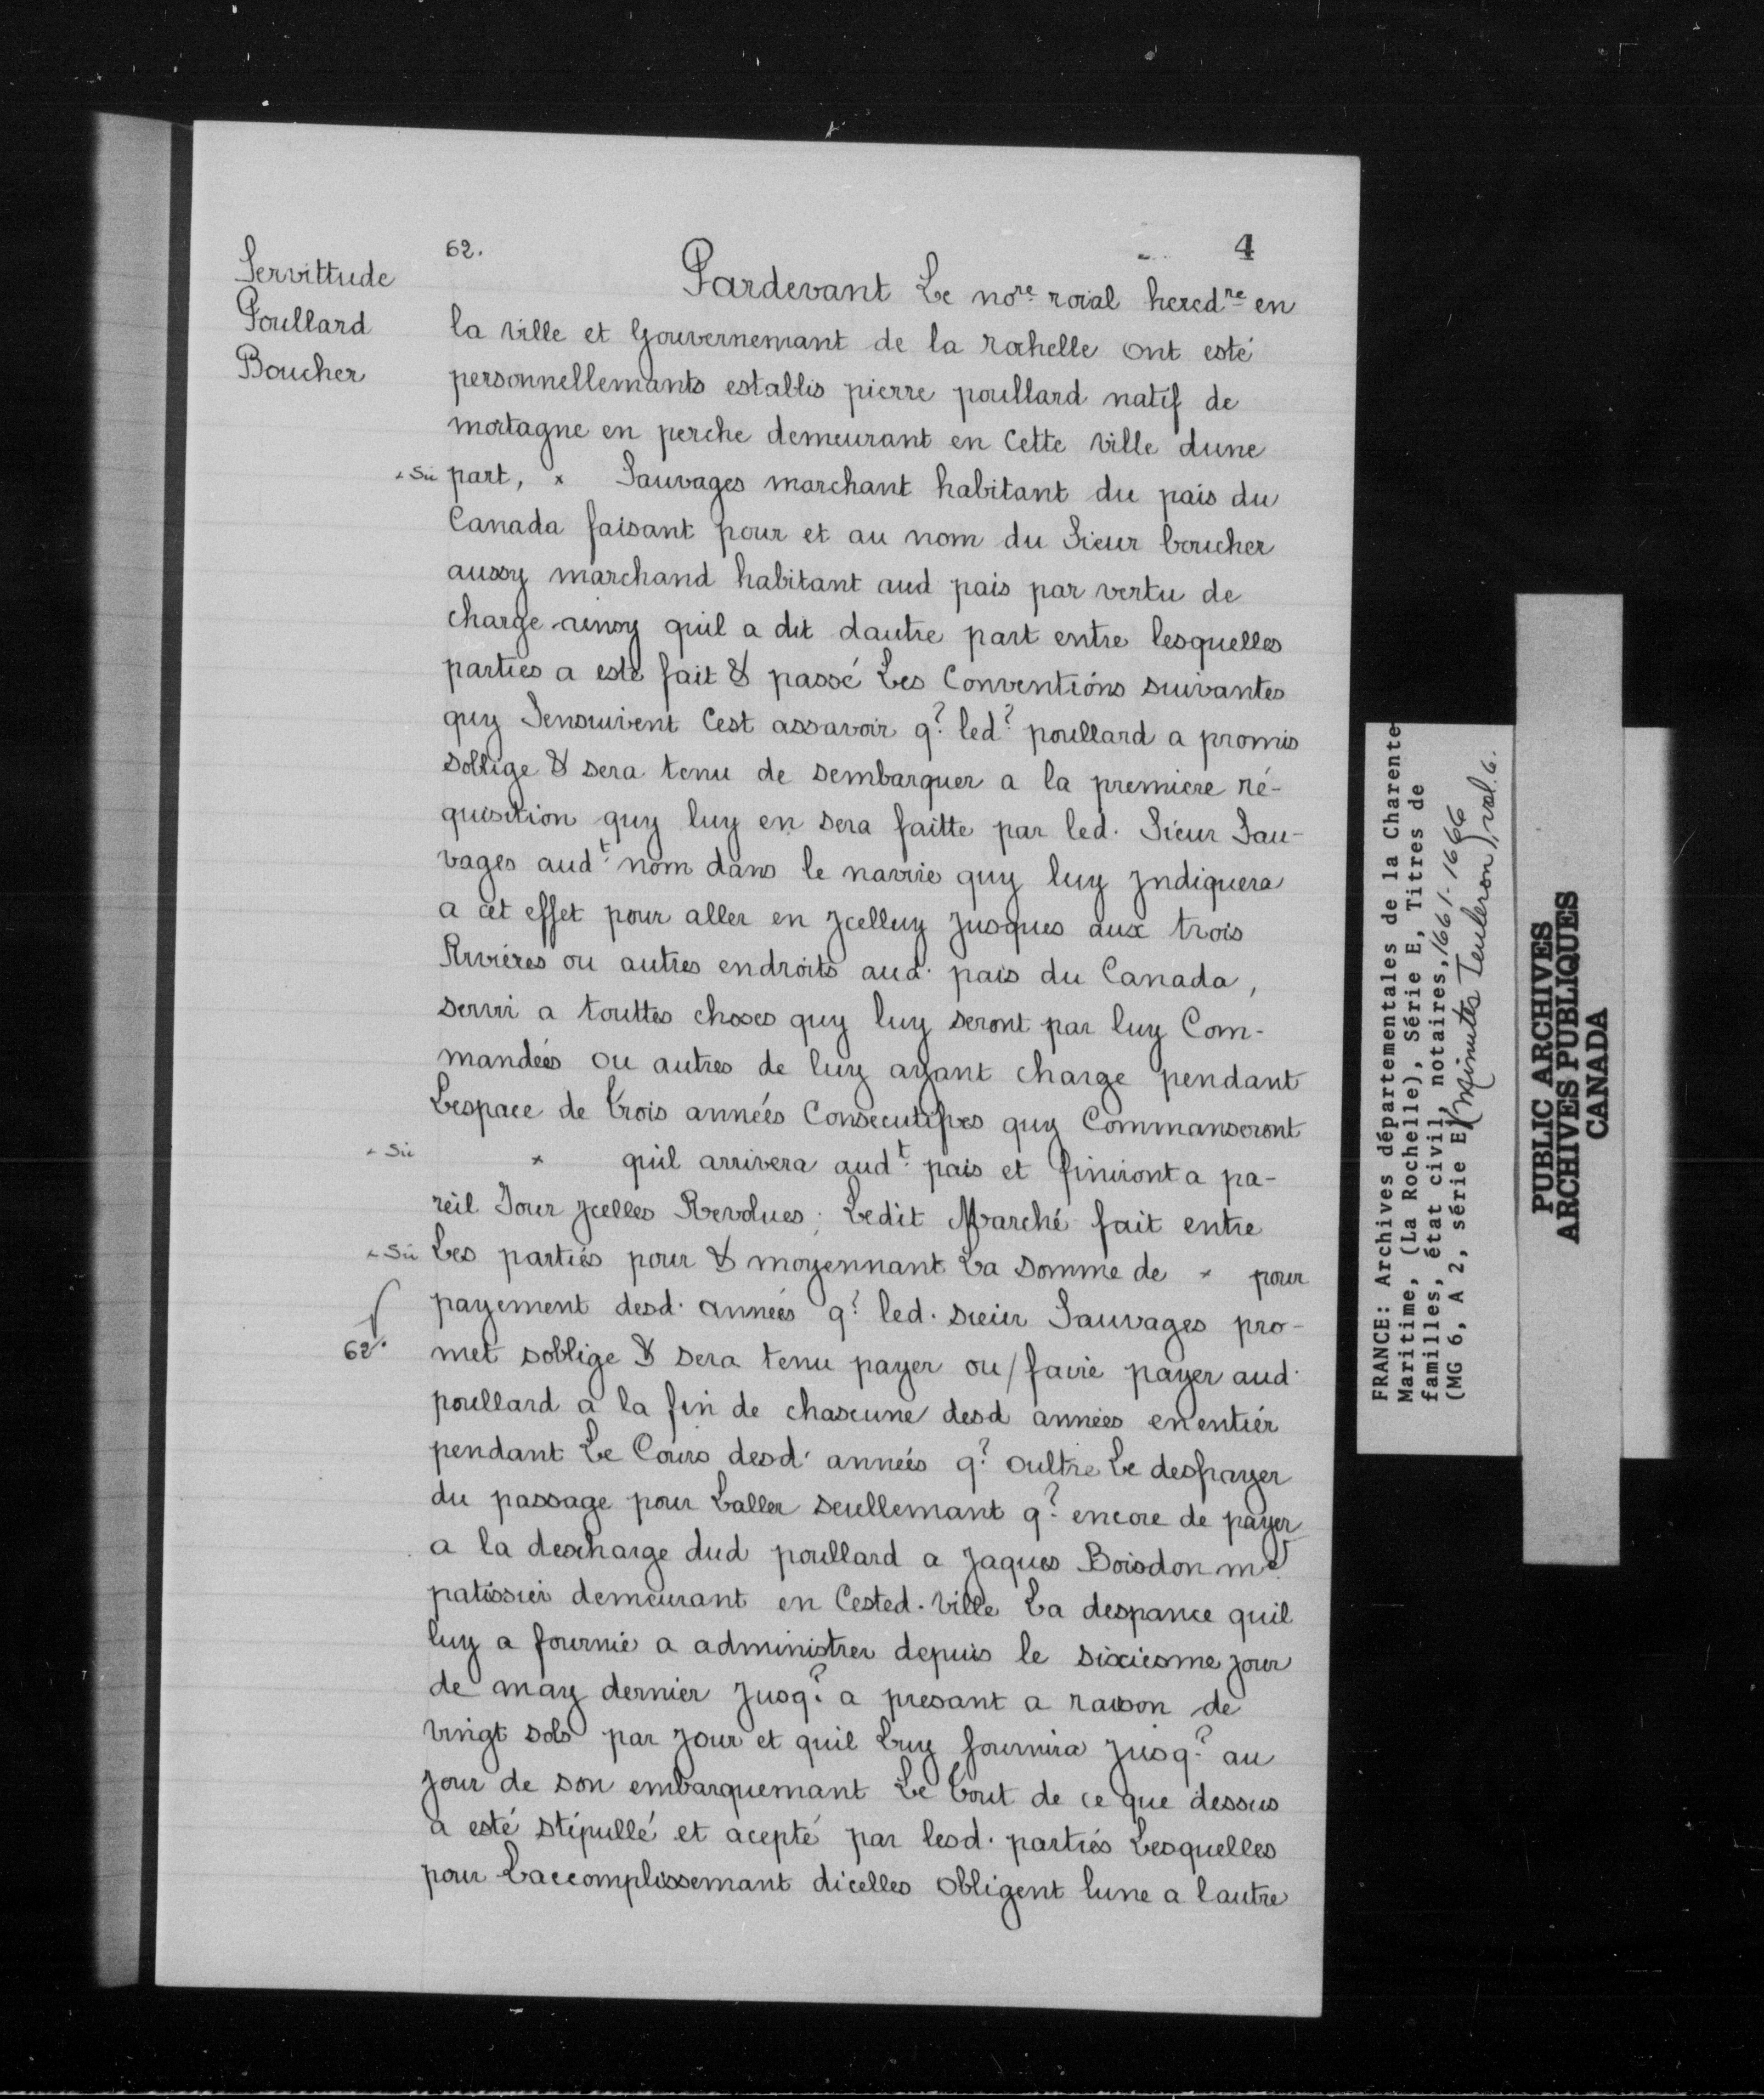 62.
4
Servittude
Poullard
Boucher
Pardevant Le nore roial heredre en
la ville et Gouvernemant de la rochelle ont esté
personnellemants establis pierre poullard natif de
mortagne en perche demeurant en Cette ville dune
x Sic part, x Sauvages marchant habitant du pais du
Canada faisant pour et au nom du Sieur boucher
aussy marchand habitant aud pais par vertu de
charge ainsy quil a dit dautre part entre lesquelles
parties a esté fait & passé Les Conventions suivantes
quy Sensuivent Cest assavoir q? led? poullard a promis
soblige & sera tenu de sembarquer a la premiere ré-
quisition quy luy en sera faitte par led. Sieur Sau-
vages audt nom dans le navire quy luy Jndiquera
a cet effet pour aller en Jcelluy Jusques aux trois
Rivières ou autres endroits aud. pais du Canada,
servir a touttes choses quy luy seront par luy Com-
mandées ou autres de luy ayant charge pendant
Lespace de trois années Consecutifves quy Commanseront
x Sic x quil arrivera audt pais et finiront a pa-
reil Jour Jcelles Revolues; Ledit Marché fait entre
x Sic Les parties pour & moyennant La somme de x pour
payement desd. années q? led. sieur Sauvages pro-
62. met soblige & sera tenu payer ou/faire payer aud.
poullard a la fin de chascune desd années en entier
pendant Le Cours desd. années q? oultre Le desfrayer
du passage pour Laller seullemant q? encore de payer
a la descharge dud poullard a Jaques Boisdon me
patissier demeurant en Cested. ville La despance quil
luy a fournie a administrer depuis le sixiesme jour
de may dernier Jusq? a presant a raison de
vingt sols par Jour et quil Luy fournira Jusq? au
jour de son embarquemant Le tout de ce que dessus
a esté stipullé et acepté par lesd. parties Lesquelles
pour Laccomplissemant dicelles obligent lune a lautre
FRANCE: Archives départementales de la Charente-
Maritime, (La Rochelle), Série E, Titres de
familles, état civil, notaires, 1661-1666
(MG 6, A 2, série E) (Minutes Teuleron), vol. 6.
PUBLIC ARCHIVES
ARCHIVES PUBLIQUES
CANADA